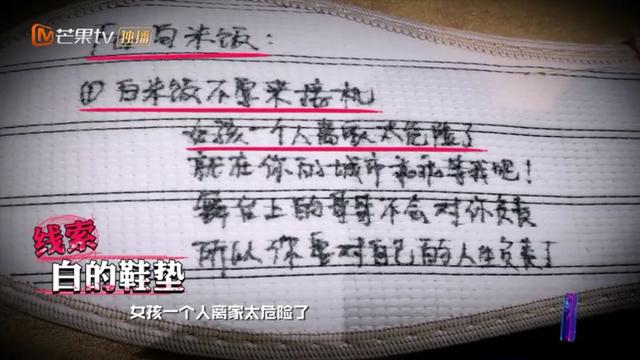 芒果tv 独播
白米饭：
①白米饭不要来接机
女孩一个人离家太危险了
就在你的城市乖乖等我吧！
舞台上的哥哥不会对你负责
所以你要对自己的人生负责了
线索
白的鞋垫
女孩一个人离家太危险了